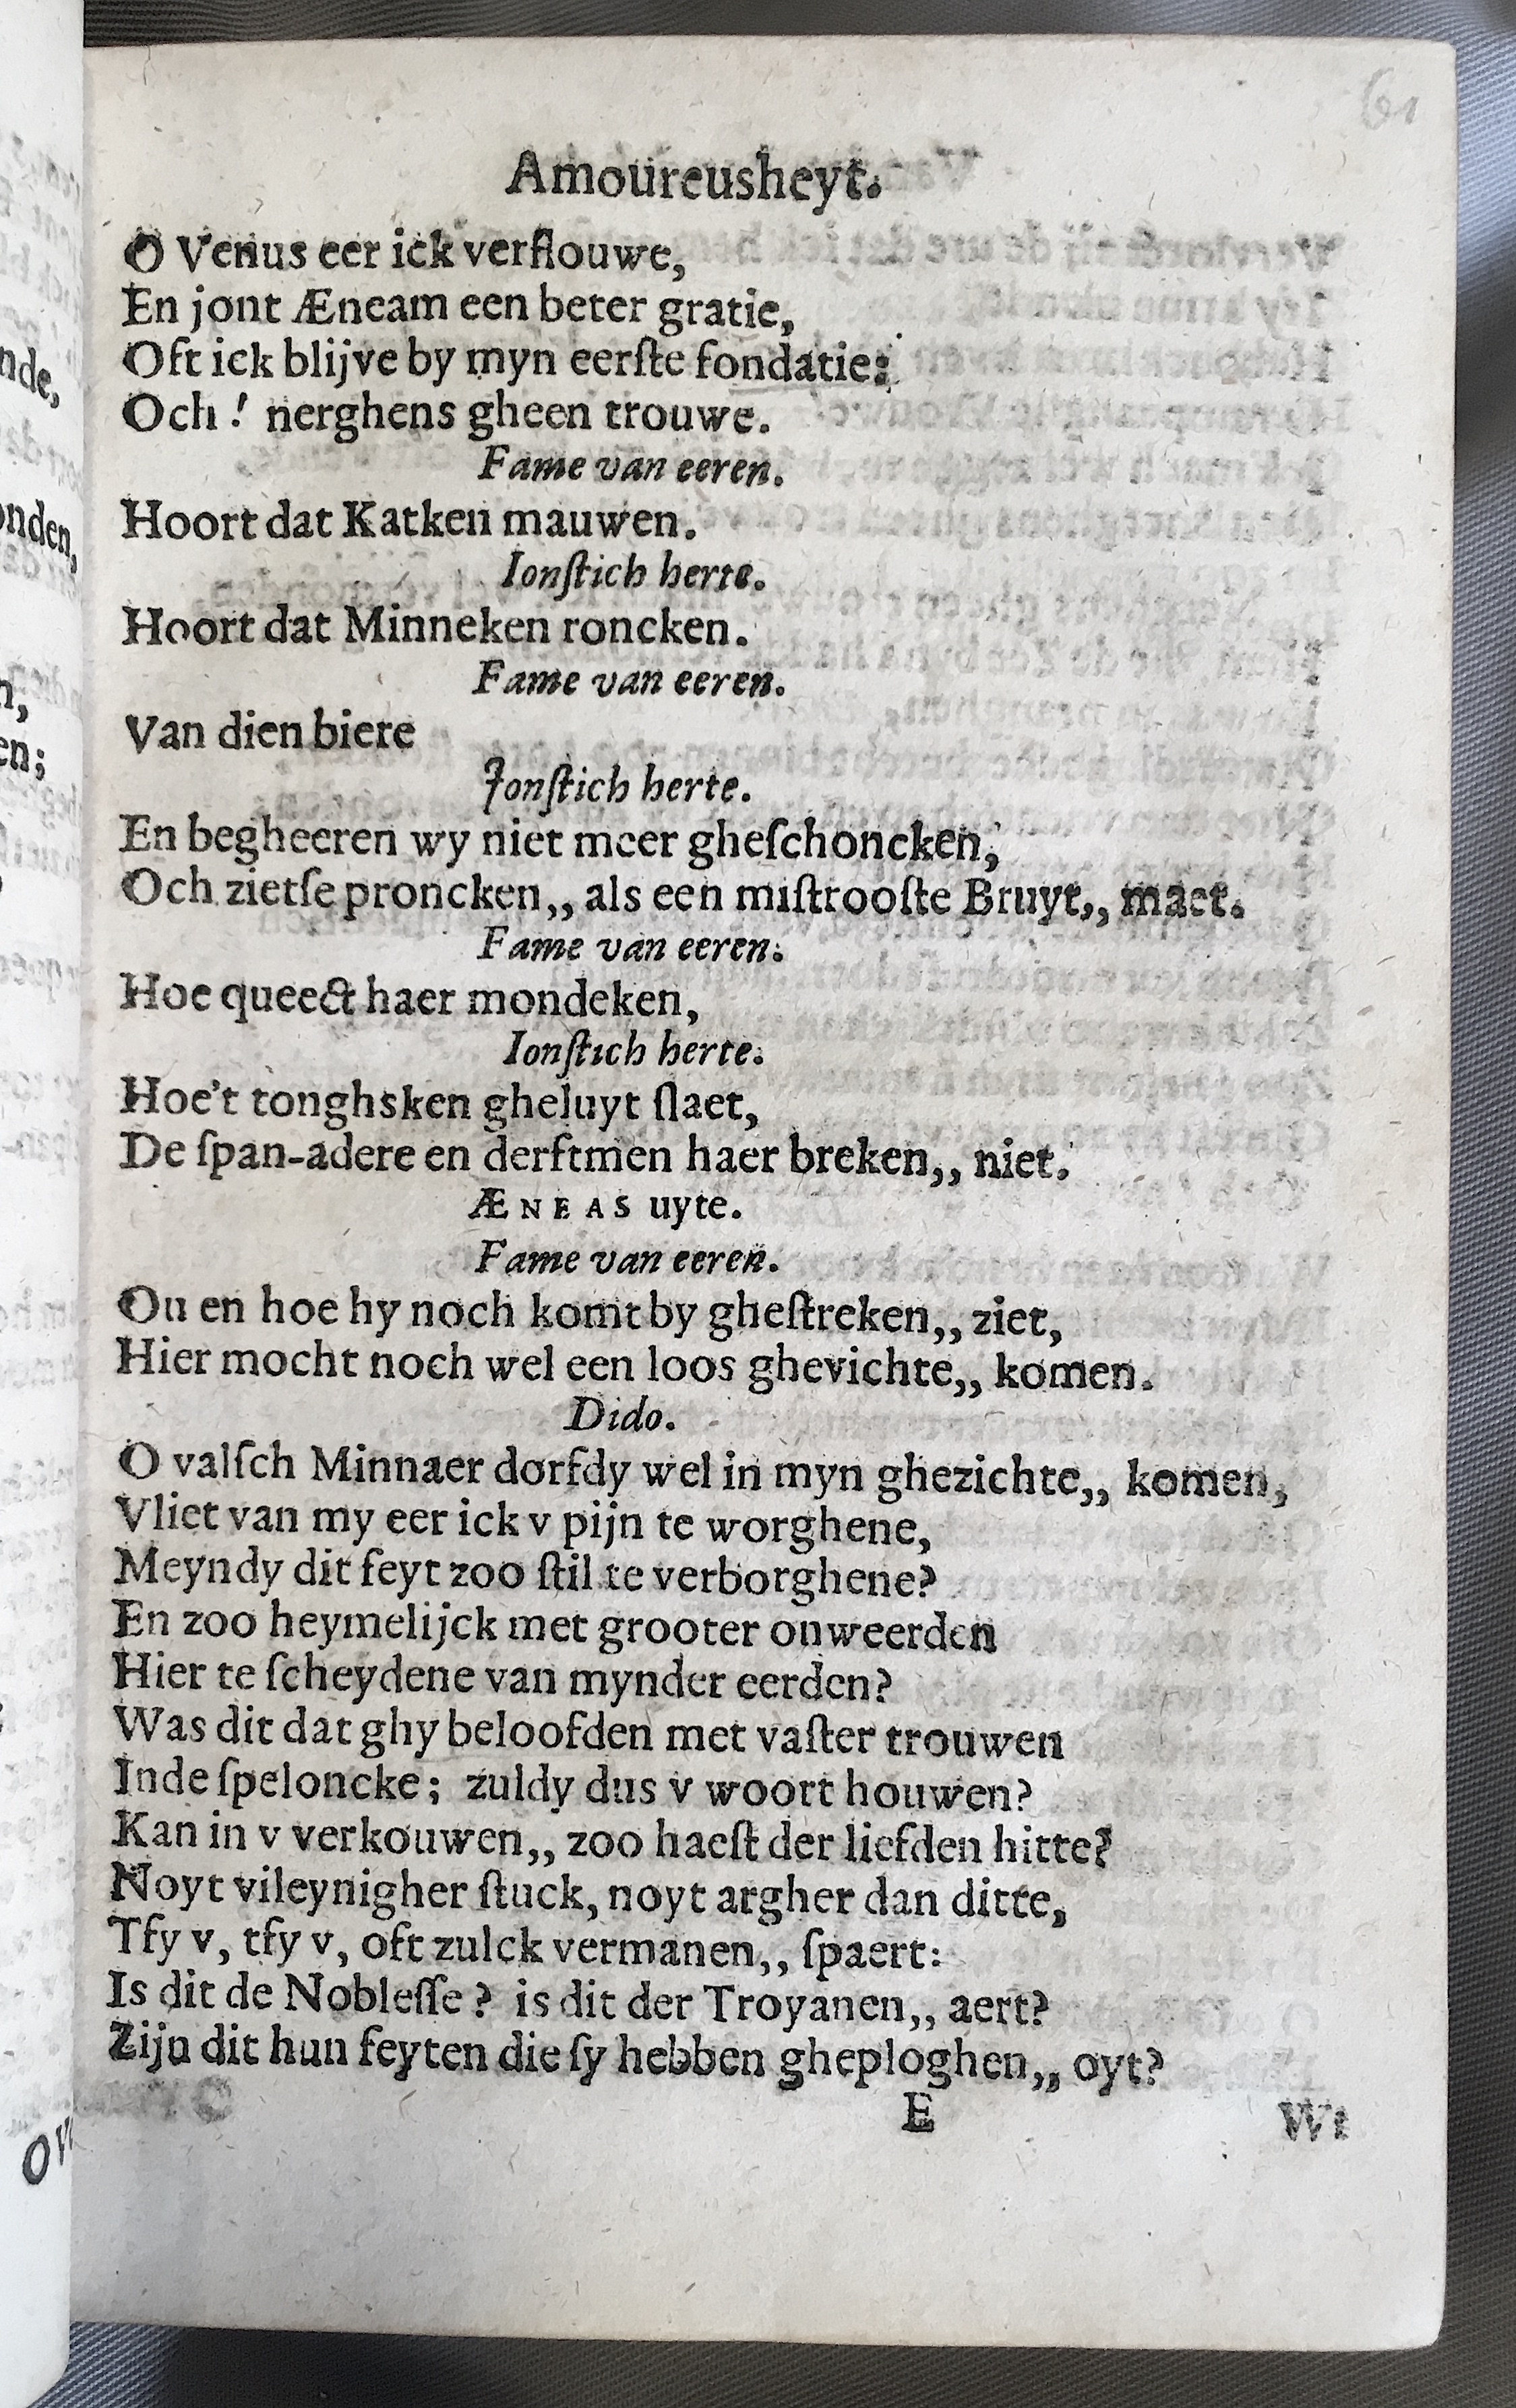 61
Amoureusheyt.
O Venus eer ick verflouwe,
En jont Æneam een beter gratie,
Oft ick blijve by myn eerſte fondatie:
Och! nerghens gheen trouwe.
Fame van eeren.
Hoort dat Katken mauwen.
Ionſtich herte.
Hoort dat Minneken roncken.
Fame van eeren.
Van dien biere
Jonſtich herte.
En begheeren wy niet meer gheſchoncken,
Och zietſe proncken,, als een miſtrooſte Bruyt,, maet.
Fame van eeren.
Hoe queect haer mondeken,
Ionſtich herte.
Hoe't tonghsken gheluyt ſlaet,
De ſpan-adere en derftmen haer breken,, niet.
ÆNEAS uyte.
Fame van eeren.
Ou en hoe hy noch komt by gheſtreken,, ziet,
Hier mocht noch wel een loos ghevichte,, komen.
Dido.
O valſch Minnaer dorfdy wel in myn ghezichte,, komen,
Vliet van my eer ick v pijn te worghene,
Meyndy dit feyt zoo ſtil te verborghene?
En zoo heymelijck met grooter onweerden
Hier te ſcheydene van mynder eerden?
Was dit dat ghy beloofden met vaſter trouwen
Inde ſpeloncke; zuldy dus v woort houwen?
Kan in v verkouwen,, zoo haeſt der liefden hitte?
Noyt vileynigher ſtuck, noyt argher dan ditte,
Tfy v, tfy v, oft zulck vermanen,, ſpaert:
Is dit de Nobleſſe? is dit der Troyanen,, aert?
Zijn dit hun feyten die ſy hebben gheploghen,, oyt?
E
Wt